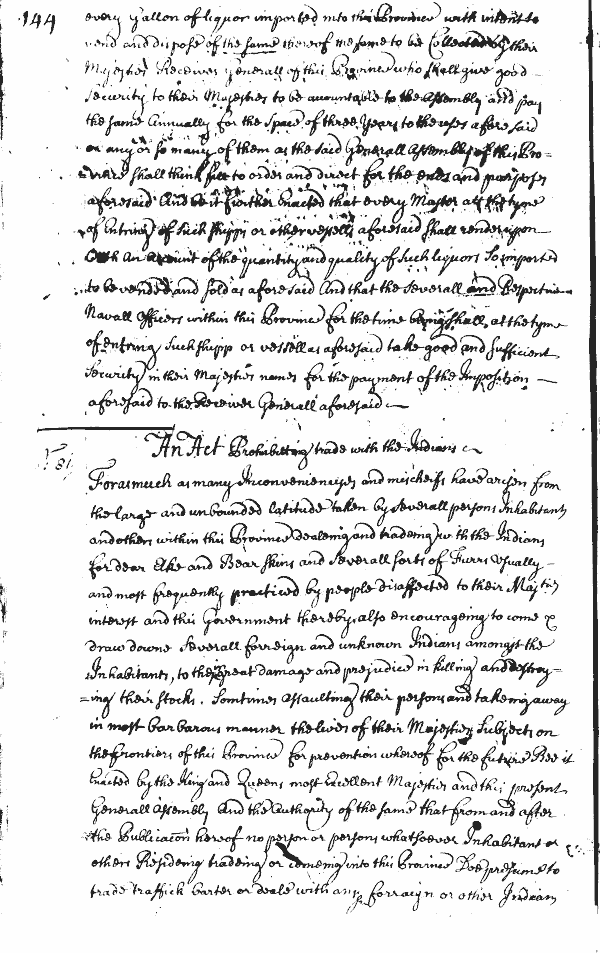 144
every Gallon of liquor imported into this Province with intent to
vend and dispose of the same thereof the same to be Collected by their
Majesties Receiver Generall of this Province who shall give good
security to their Majesties to be accountable to the Assembly and pay
the same Annually for the space of three Years to the uses aforesaid
or any or so many of them as the said Generall Assembly of this Pro=
vince shall think fitt to order and direct for the ends and purposes
aforesaid And be it further Enacted that every Master att the tyme
of Entring of such shipps or other vessells aforesaid shall render upon
Oath An account of the quantity and quality of such liquors So imported
to be vended and sold as aforesaid And that the severall and Respective
Navall Officers within this Province for the time being shall, at the tyme
of entring such shipp or vessell as aforesaid take good and sufficient
Security in their Majesties names for the payment of the Imposition
aforesaid to the Receiver Generall aforesaid
An Act Prohibitting trade with the Indians
Forasmuch as many Inconveniencyes and mischeifs have arisen from
the large and unbounded latitude taken by severall persons Inhabitants
and others within this Province dealeing and tradeing with the Indians
for dear Elke and Bear skins and Severall sorts of Furrs usually
and most frequently practiced by people disaffected to their Majties
interest and this Government thereby also encourageing to come &
draw downe Severall forreign and unknown Indians amongst the
Inhabitants, to the great damage and prejudice in killing and destroy=
=ing their stocks. Somtimes assaulting their persons and takeing away
in most barbarous manner the lives of their Majesties Subjects on
the frontiers of this Province for prevention whereof for the future Bee it
Enacted by the King and Queens most Excellent Majesties and this present
Generall Assembly And the Authority of the same that from and after
the Publicacon hereof no person or persons whatsoever Inhabitant or
others Resideing tradeing or comeing into this Province Doe presume to
trade traffick barter or deale with any forraign or other Indian